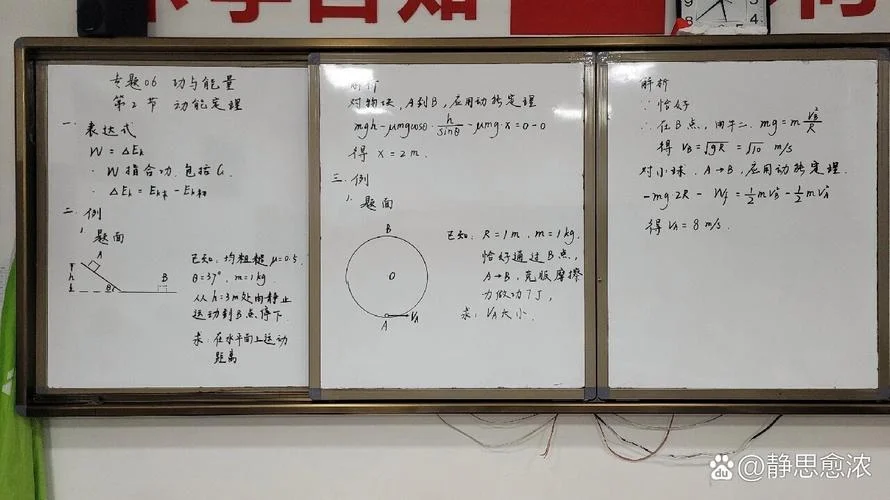 专题06 功与能量
第2节 动能定理
一. 表达式
W = ΔEk
· W 指合功. 包括G.
· ΔEk = Ek末 - Ek初
二. 例
1. 题面
A
h
θ
B
已知: 均粗糙 μ=0.5.
θ=37°, m=1kg.
从 h=3m处由静止
运动到B点停下.
求: 在水平面上运动
距离
解析
对物块, A到B, 应用动能定理
mgh - μmgcosθ·h/sinθ - μmg·x = 0-0
得 x = 2m.
三. 例
1. 题面
B
O
A
VA
已知: R=1m. m=1kg.
恰好通过B点,
A→B, 克服摩擦
力做功7J,
求: VA大小.
解析
∵恰好
∴在B点, 用牛二. mg = m VB²/R
得 VB = √gR = √10 m/s
对小球. A→B, 应用动能定理.
-mg 2R - Wf = ½mVB² - ½mVA²
得 VA = 8 m/s.
8
7
6
5
Baidu @静思愈浓